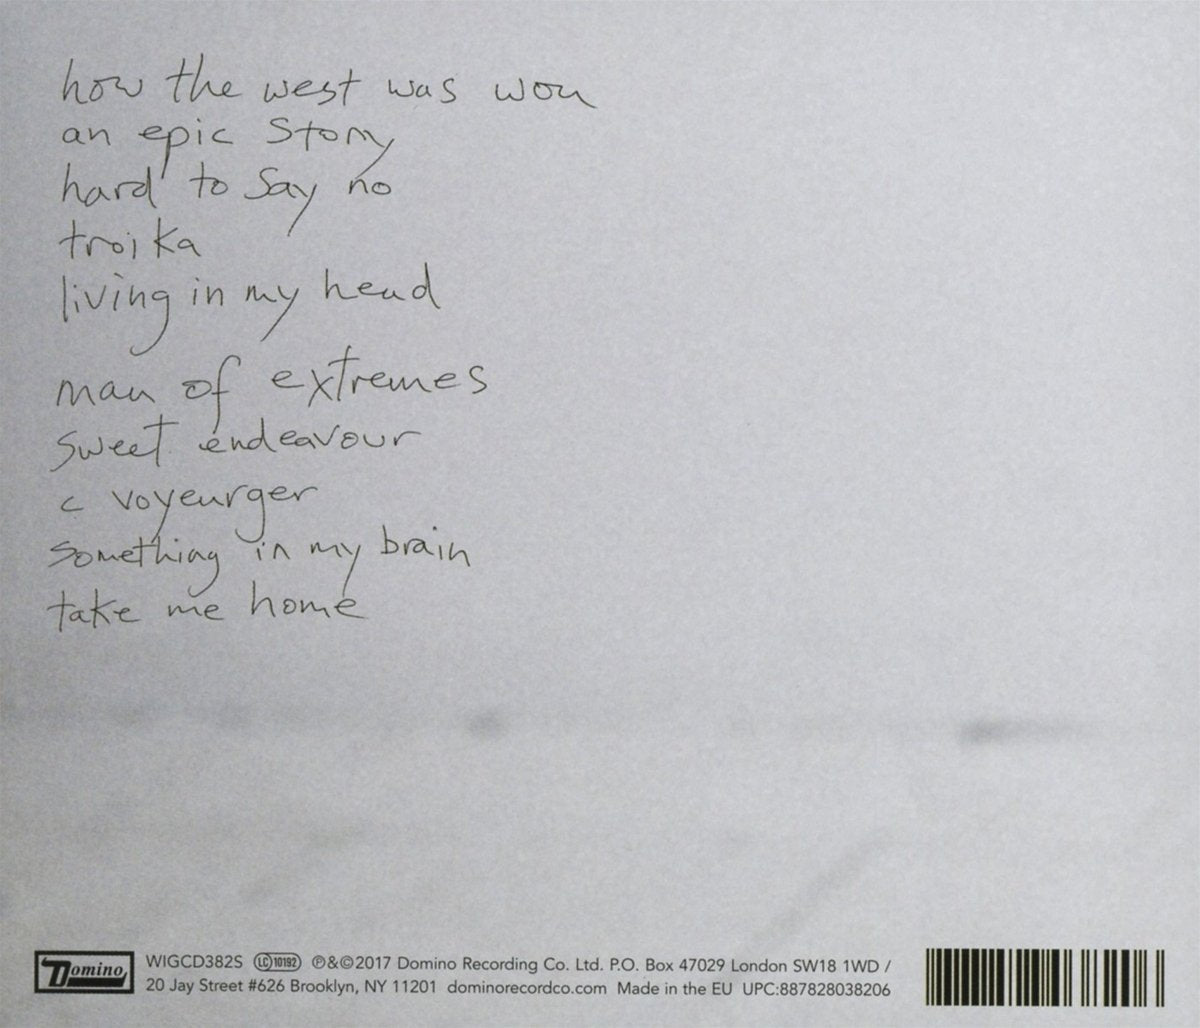 how the west was won
an epic story
hard to say no
troika
living in my head
man of extremes
sweet endeavour
c voyeurger
something in my brain
take me home
Domino
WIGCD382S LC 10192 ℗&©2017 Domino Recording Co. Ltd. P.O. Box 47029 London SW18 1WD /
20 Jay Street #626 Brooklyn, NY 11201 dominorecordco.com Made in the EU UPC:887828038206